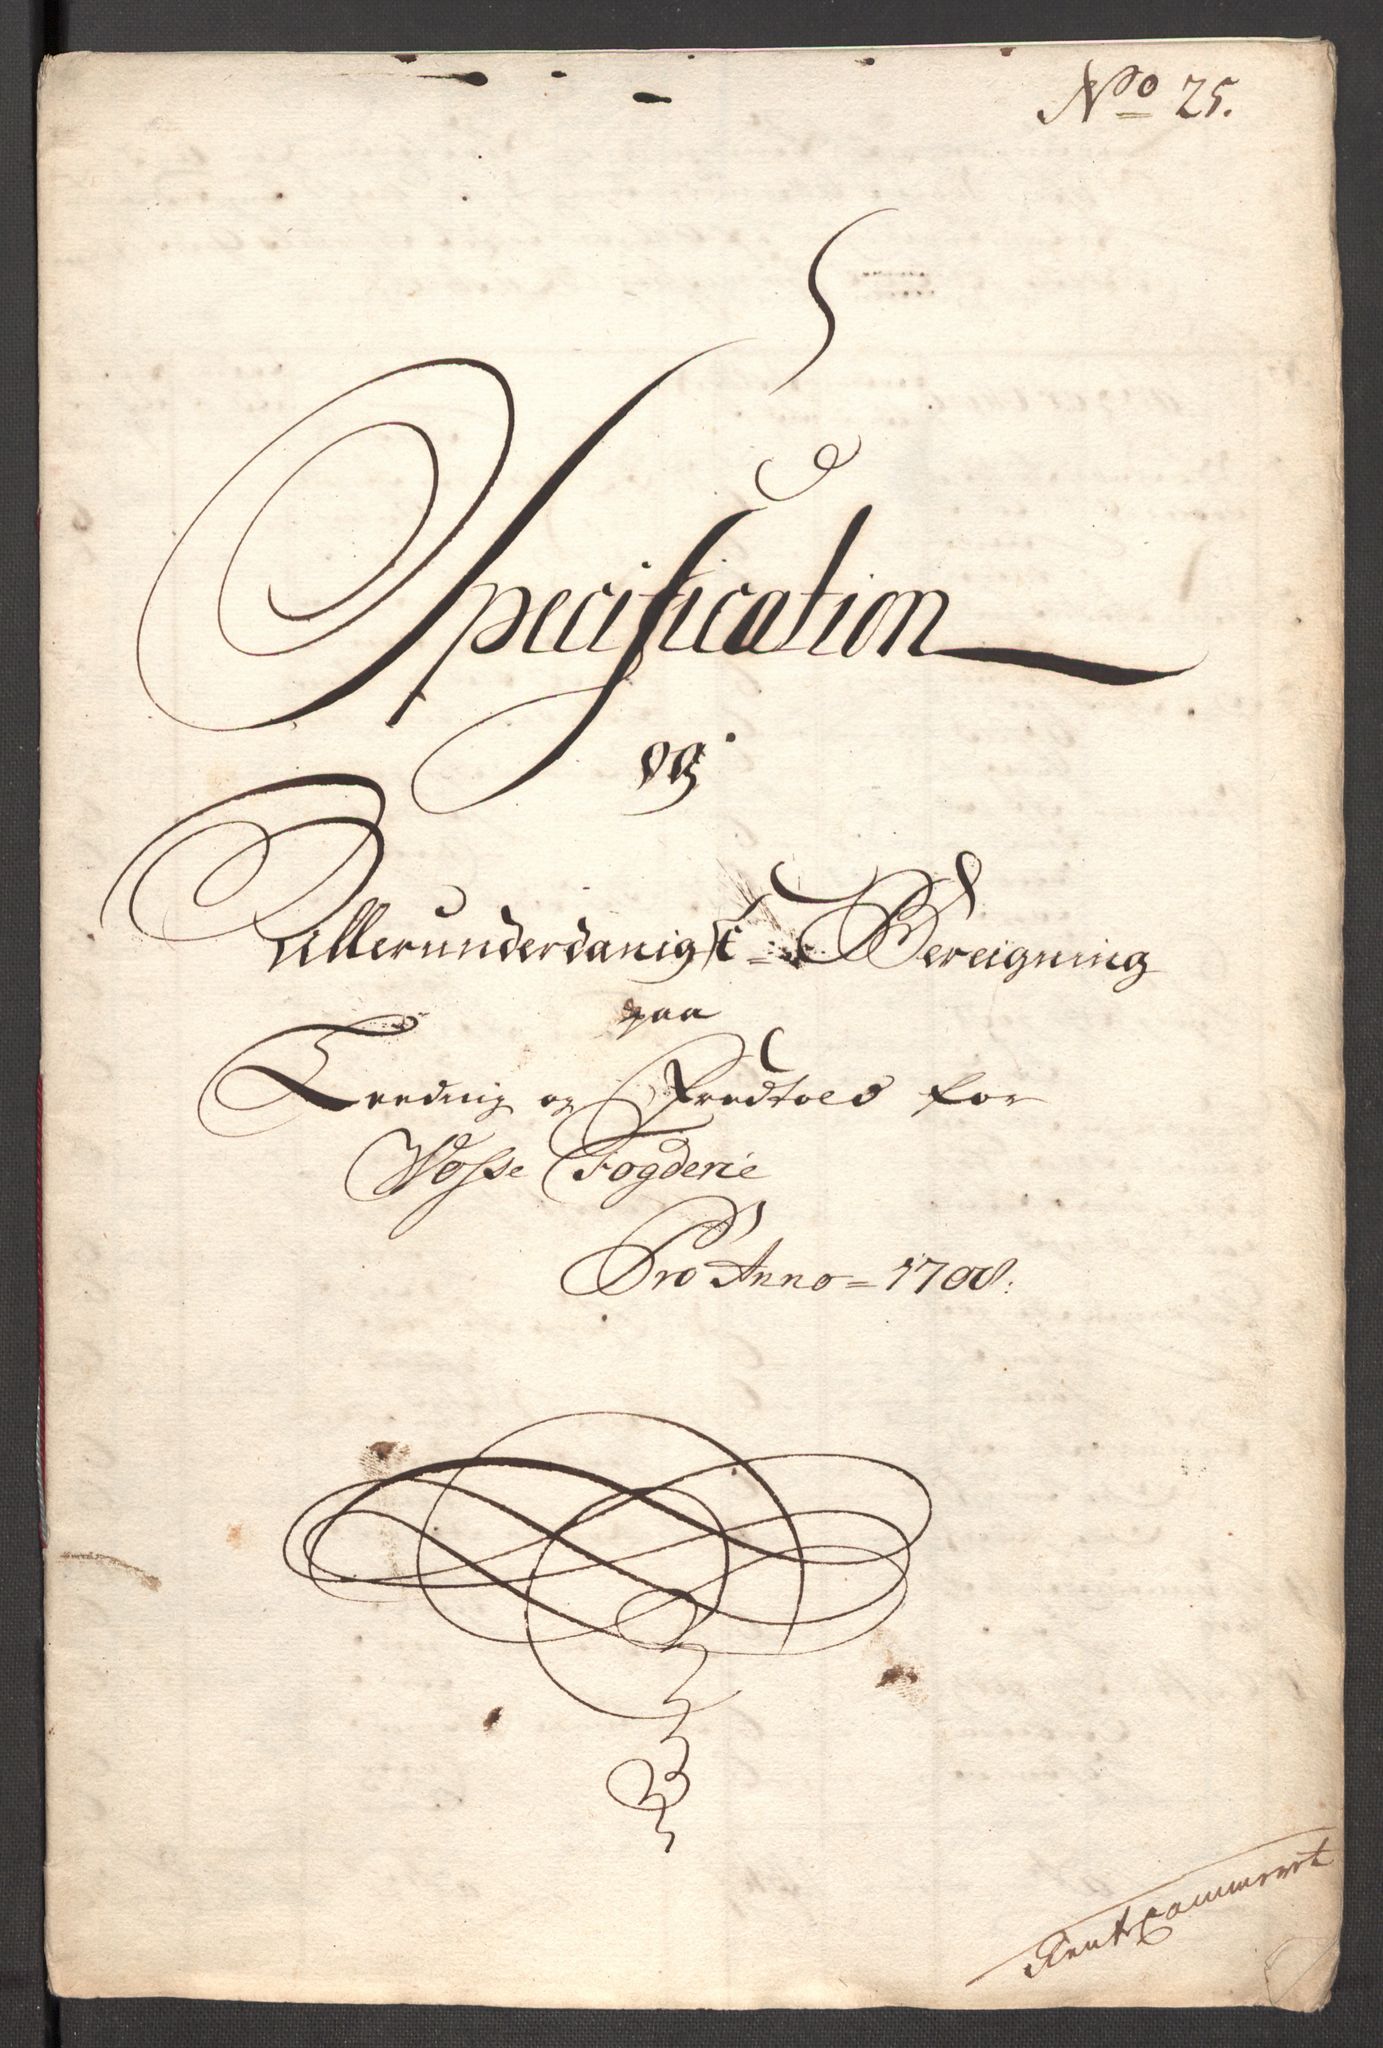 No 25.
Specification
og
Allerunderdanigst = Bereigning
paa
Leeding og Fredtold for
Wosse Fogderie
Pro Anno = 1708:
RentCammeret